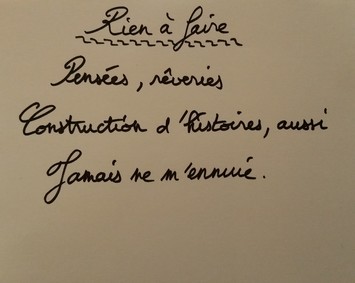 Rien à faire
Pensées, rêveries
Construction d'histoires, aussi
Jamais ne m'ennuié.